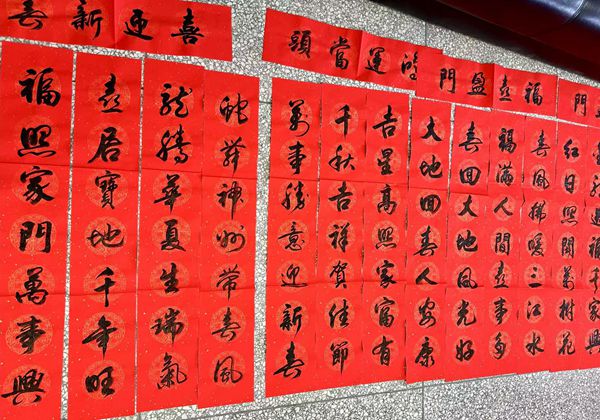 喜迎新春
鴻運當頭
福喜盈門
門
福照家門萬事興
喜居寶地千年旺
龍騰華夏生瑞氣
蛇舞神州帶春風
萬事勝意迎新春
千秋吉祥賀佳節
吉星高照家富有
大地回春人安康
春回大地風光好
福滿人間喜事多
春風拂暖三江水
紅日照開萬樹花